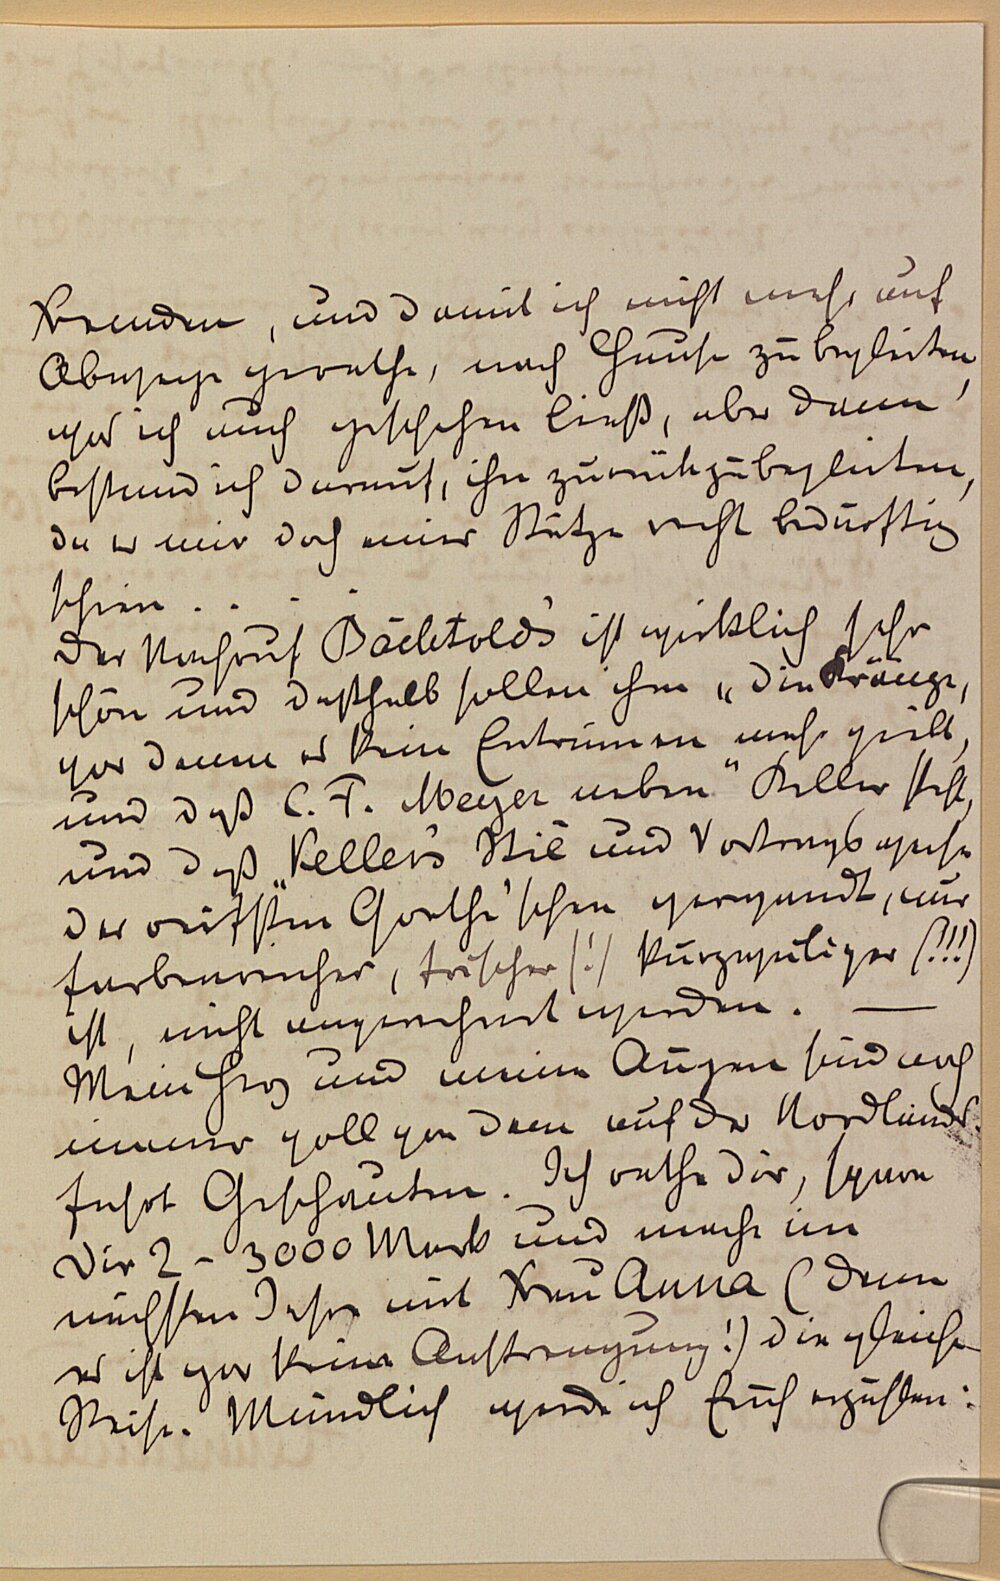 Fremden, und damit ich nicht mehr auf
Abwege gerathe, nach Hause zu begleiten,
was ich auch geschehen ließ, aber dann
bestand ich darauf, ihn zurückzubegleiten,
da er mir doch einer Stütze recht bedürftig
schien . . . .
Der Nachruf Bächtold's ist wirklich sehr
schön und deßhalb sollen ihm „die Kränze,
vor denen er kein Entrinnen mehr gibt,
und daß C. F. Meyer neben" Keller steht,
und daß „Keller's Stil und Vortragsweise
der reifsten Goethe'schen verwandt, nur
farbenreicher, frischer (!) kurzweiliger (!!!)
ist, nicht angerechnet werden. —
Mein Herz und meine Augen sind noch
immer voll von dem auf der Nordlands-
fahrt Geschauten. Ich rathe Dir, spare
Dir 2 - 3000 Mark und mache im
nächsten Jahre mit Frau Anna (denn
es ist gar keine Anstrengung!) die gleiche
Reise. Mündlich werde ich Euch erzählen: